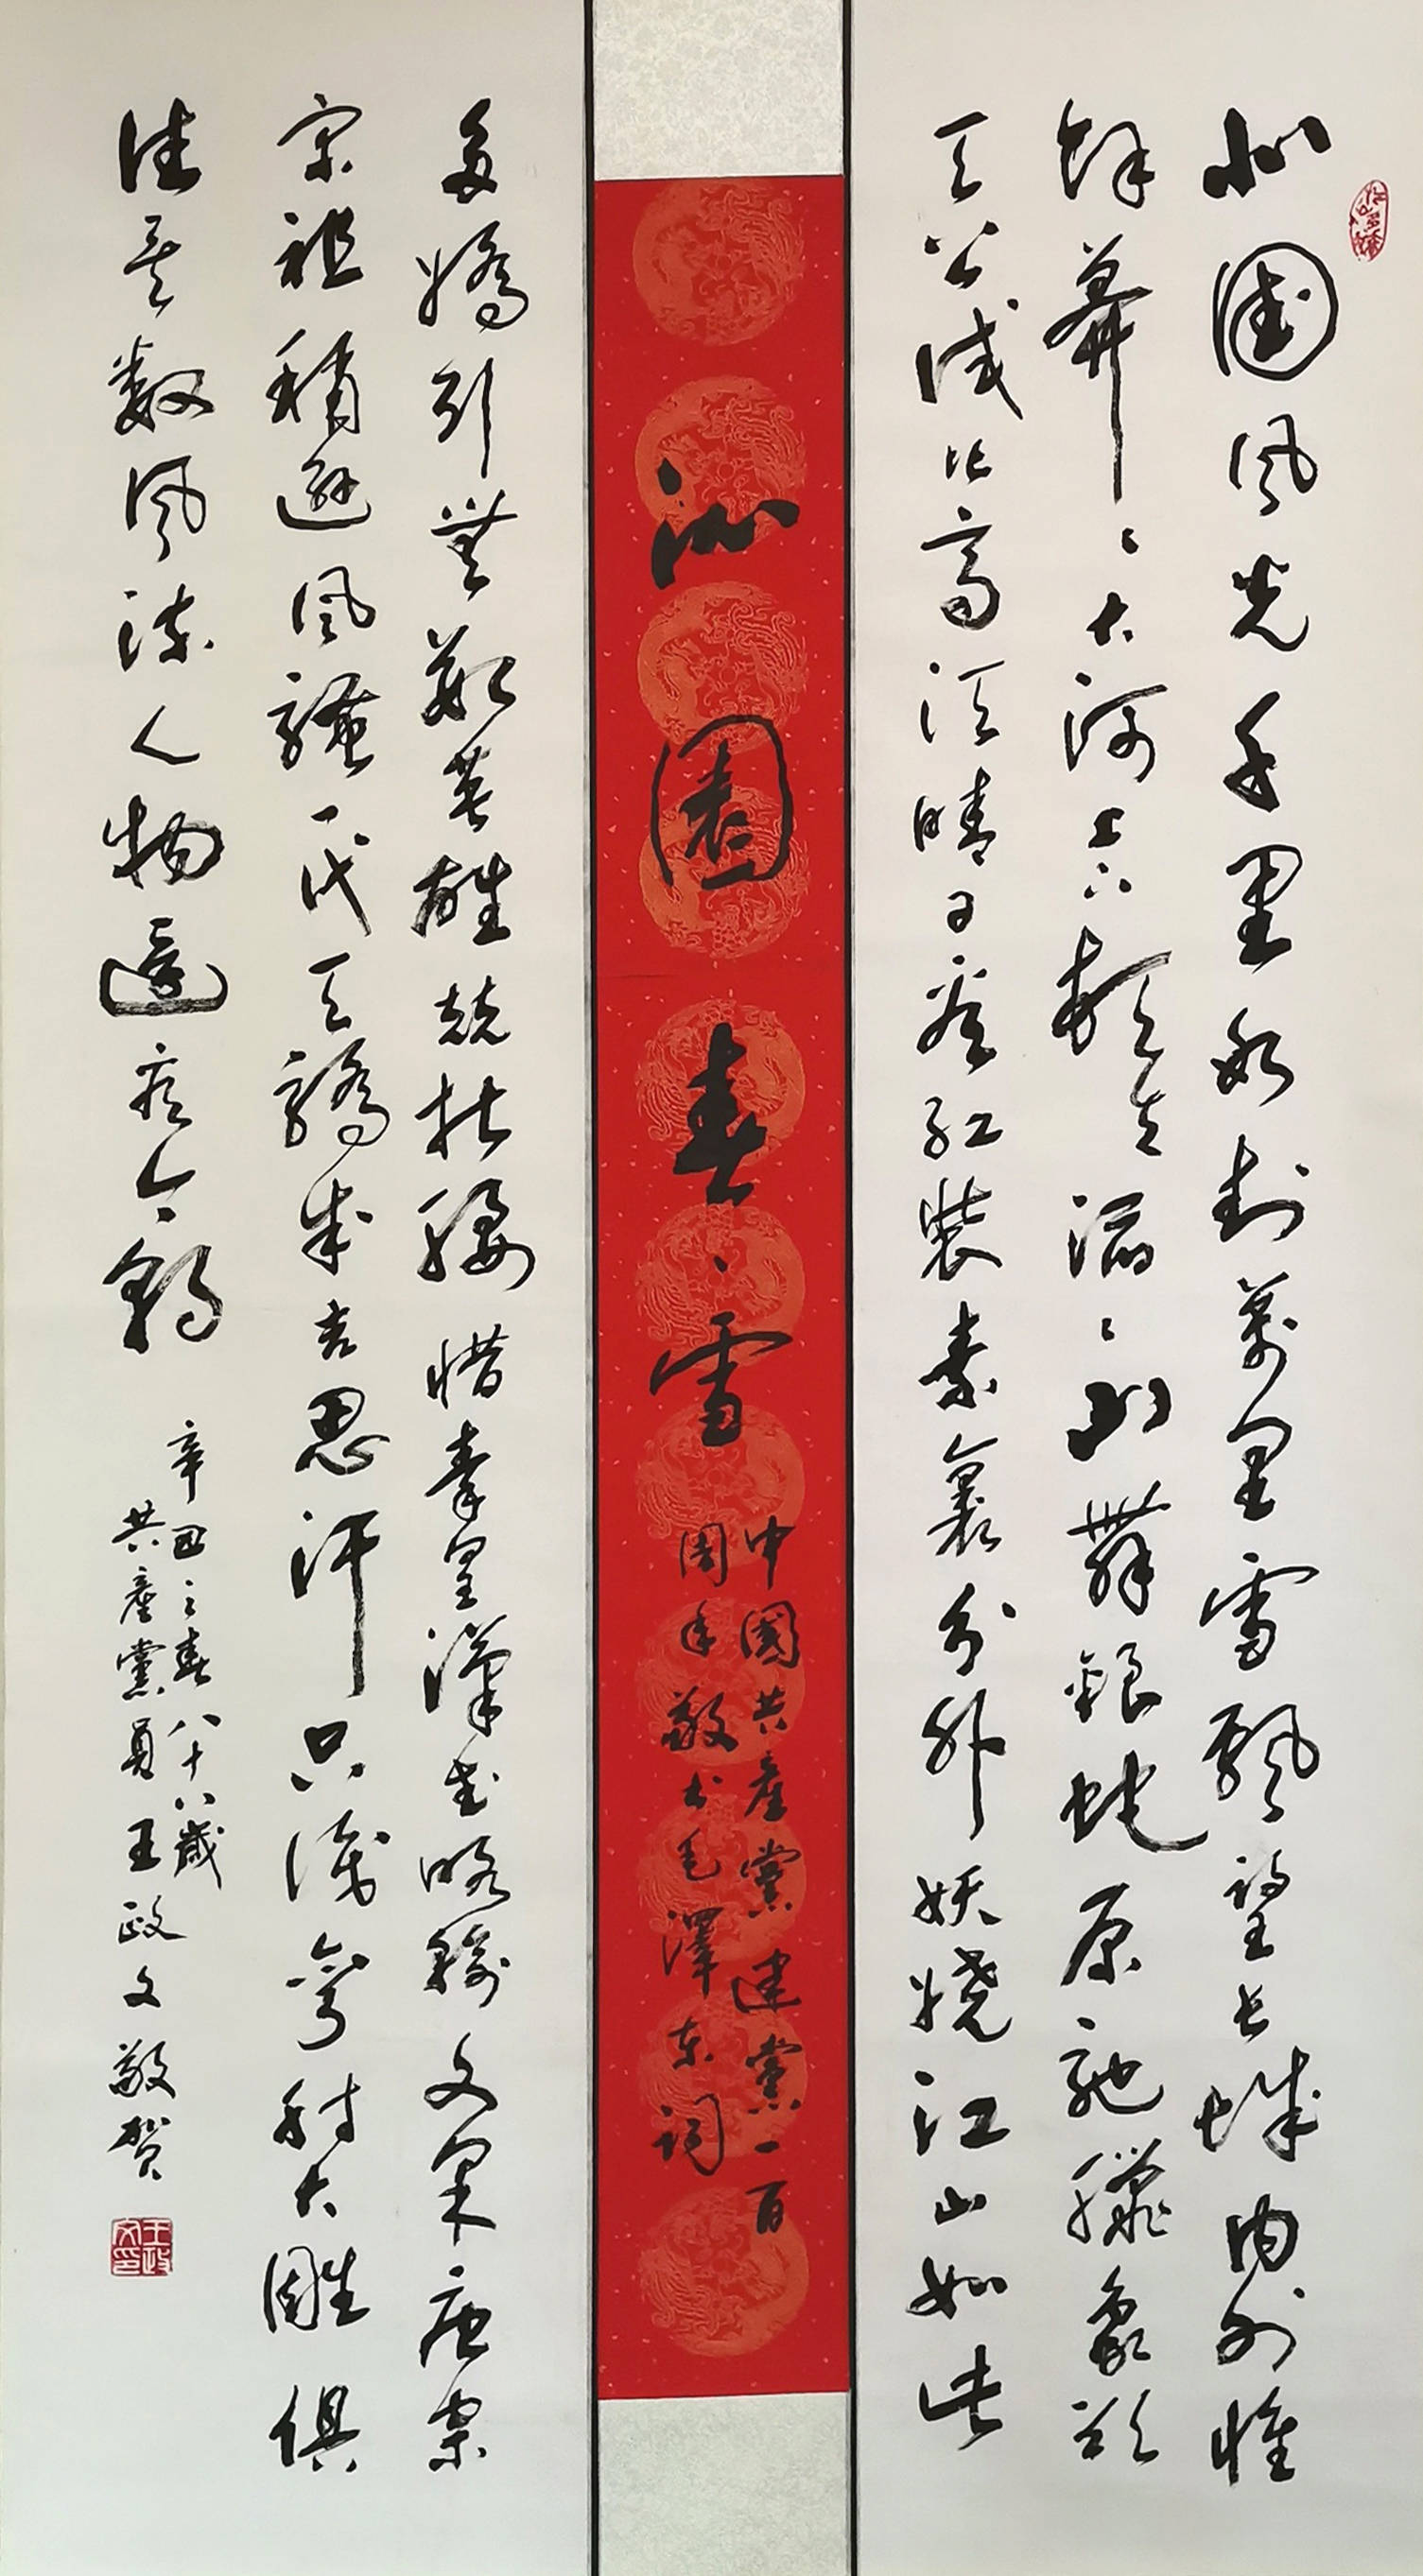 北國風光千里冰封萬里雪飄望長城內外惟
餘莽〻大河上下頓失滔〻山舞銀蛇原馳臘象欲
天公試比高須晴日看紅裝素裹分外妖嬈江山如此
沁園春·雪
中國共產黨建黨一百
周年敬书毛澤东词
多嬌引無數英雄競折腰惜秦皇漢武略輸文采唐宗
宋祖稍遜風騷一代天驕成吉思汗只識彎射大雕俱
往矣數風流人物還看今朝
辛丑之春八十八歲
共產黨員王政文敬贺
王政文印